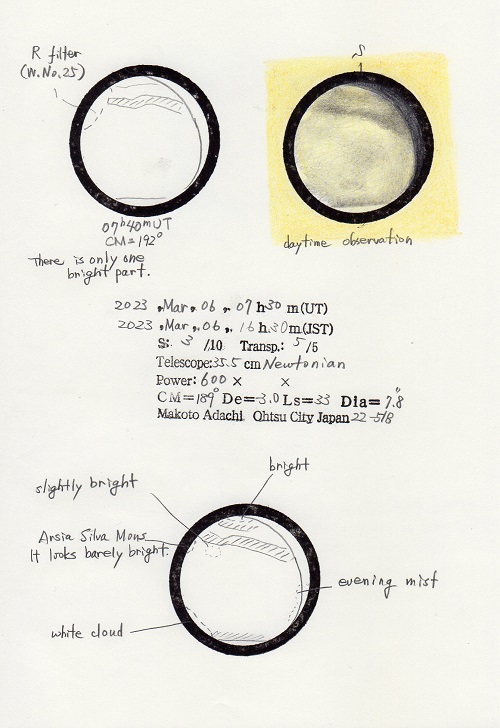 R filter
(W.No.25)
S
07h40mUT
CM=192°
There is only one
bright part.
daytime observation
2023 ,Mar,.06 ,. 07 h30 m(UT)
2023 ,Mar,.06,. 16 h.30m(JST)
S: 3 /10 Transp.: 5/5
Telescope:35.5 cm Newtonian
Power: 600 × ×
CM=189° De=-3.0 Ls=33 Dia=7.8"
Makoto Adachi Ohtsu City Japan 22-518
bright
slightly bright
Arsia Silva Mons
It looks barely bright.
evening mist
white cloud